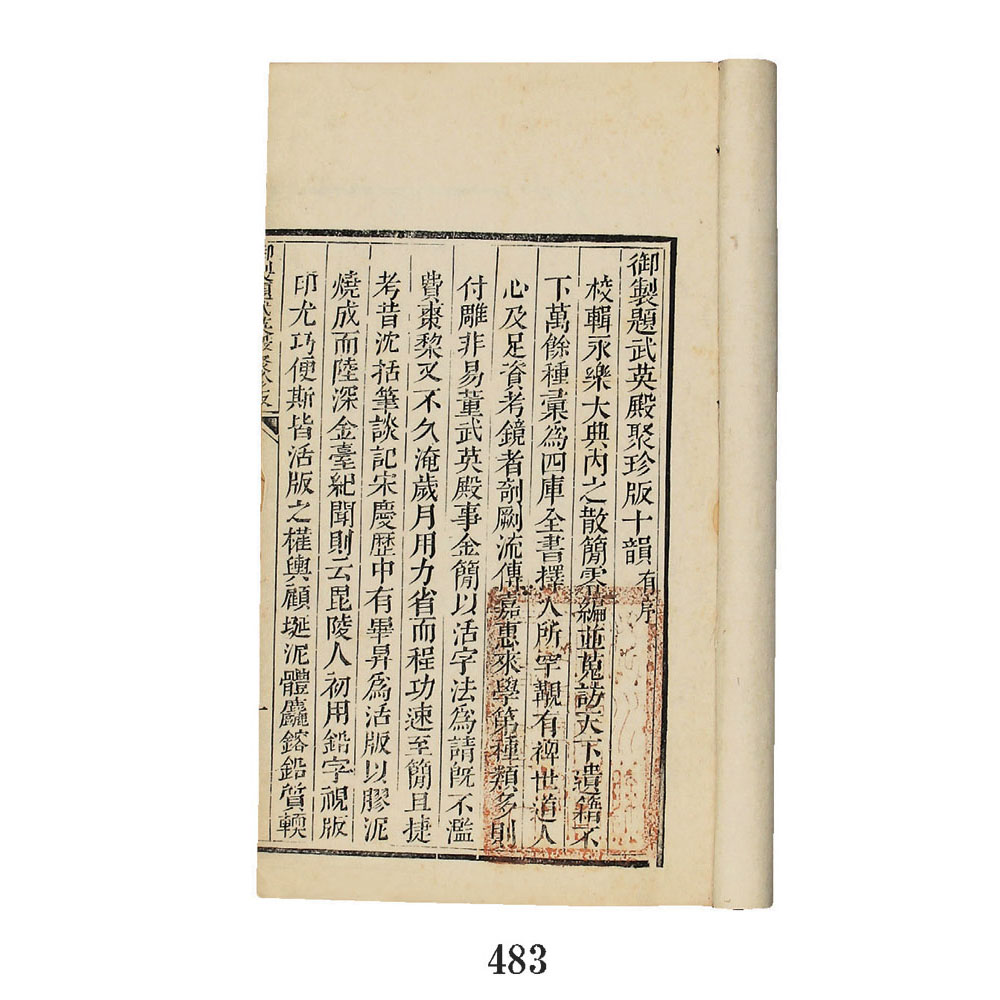 御製題武英殿聚珍版十韻有序
校輯永樂大典內之散簡零編並蒐訪天下遺籍不
下萬餘種彚為四庫全書擇人所罕覯有裨世道人
心及足資考鏡者剞劂流傳嘉惠來學第種類多則
付雕非易董武英殿事金簡以活字法為請既不濫
費棗棃又不久淹歲月用力省而程功速至簡且捷
考昔沈括筆談記宋慶歷中有畢昇為活版以膠泥
燒成而陸深金臺紀聞則云毘陵人初用鉛字視版
印尤巧便斯皆活版之權輿顧埏泥體麤鎔鉛質輭
御製題武英殿聚珍版
一
483